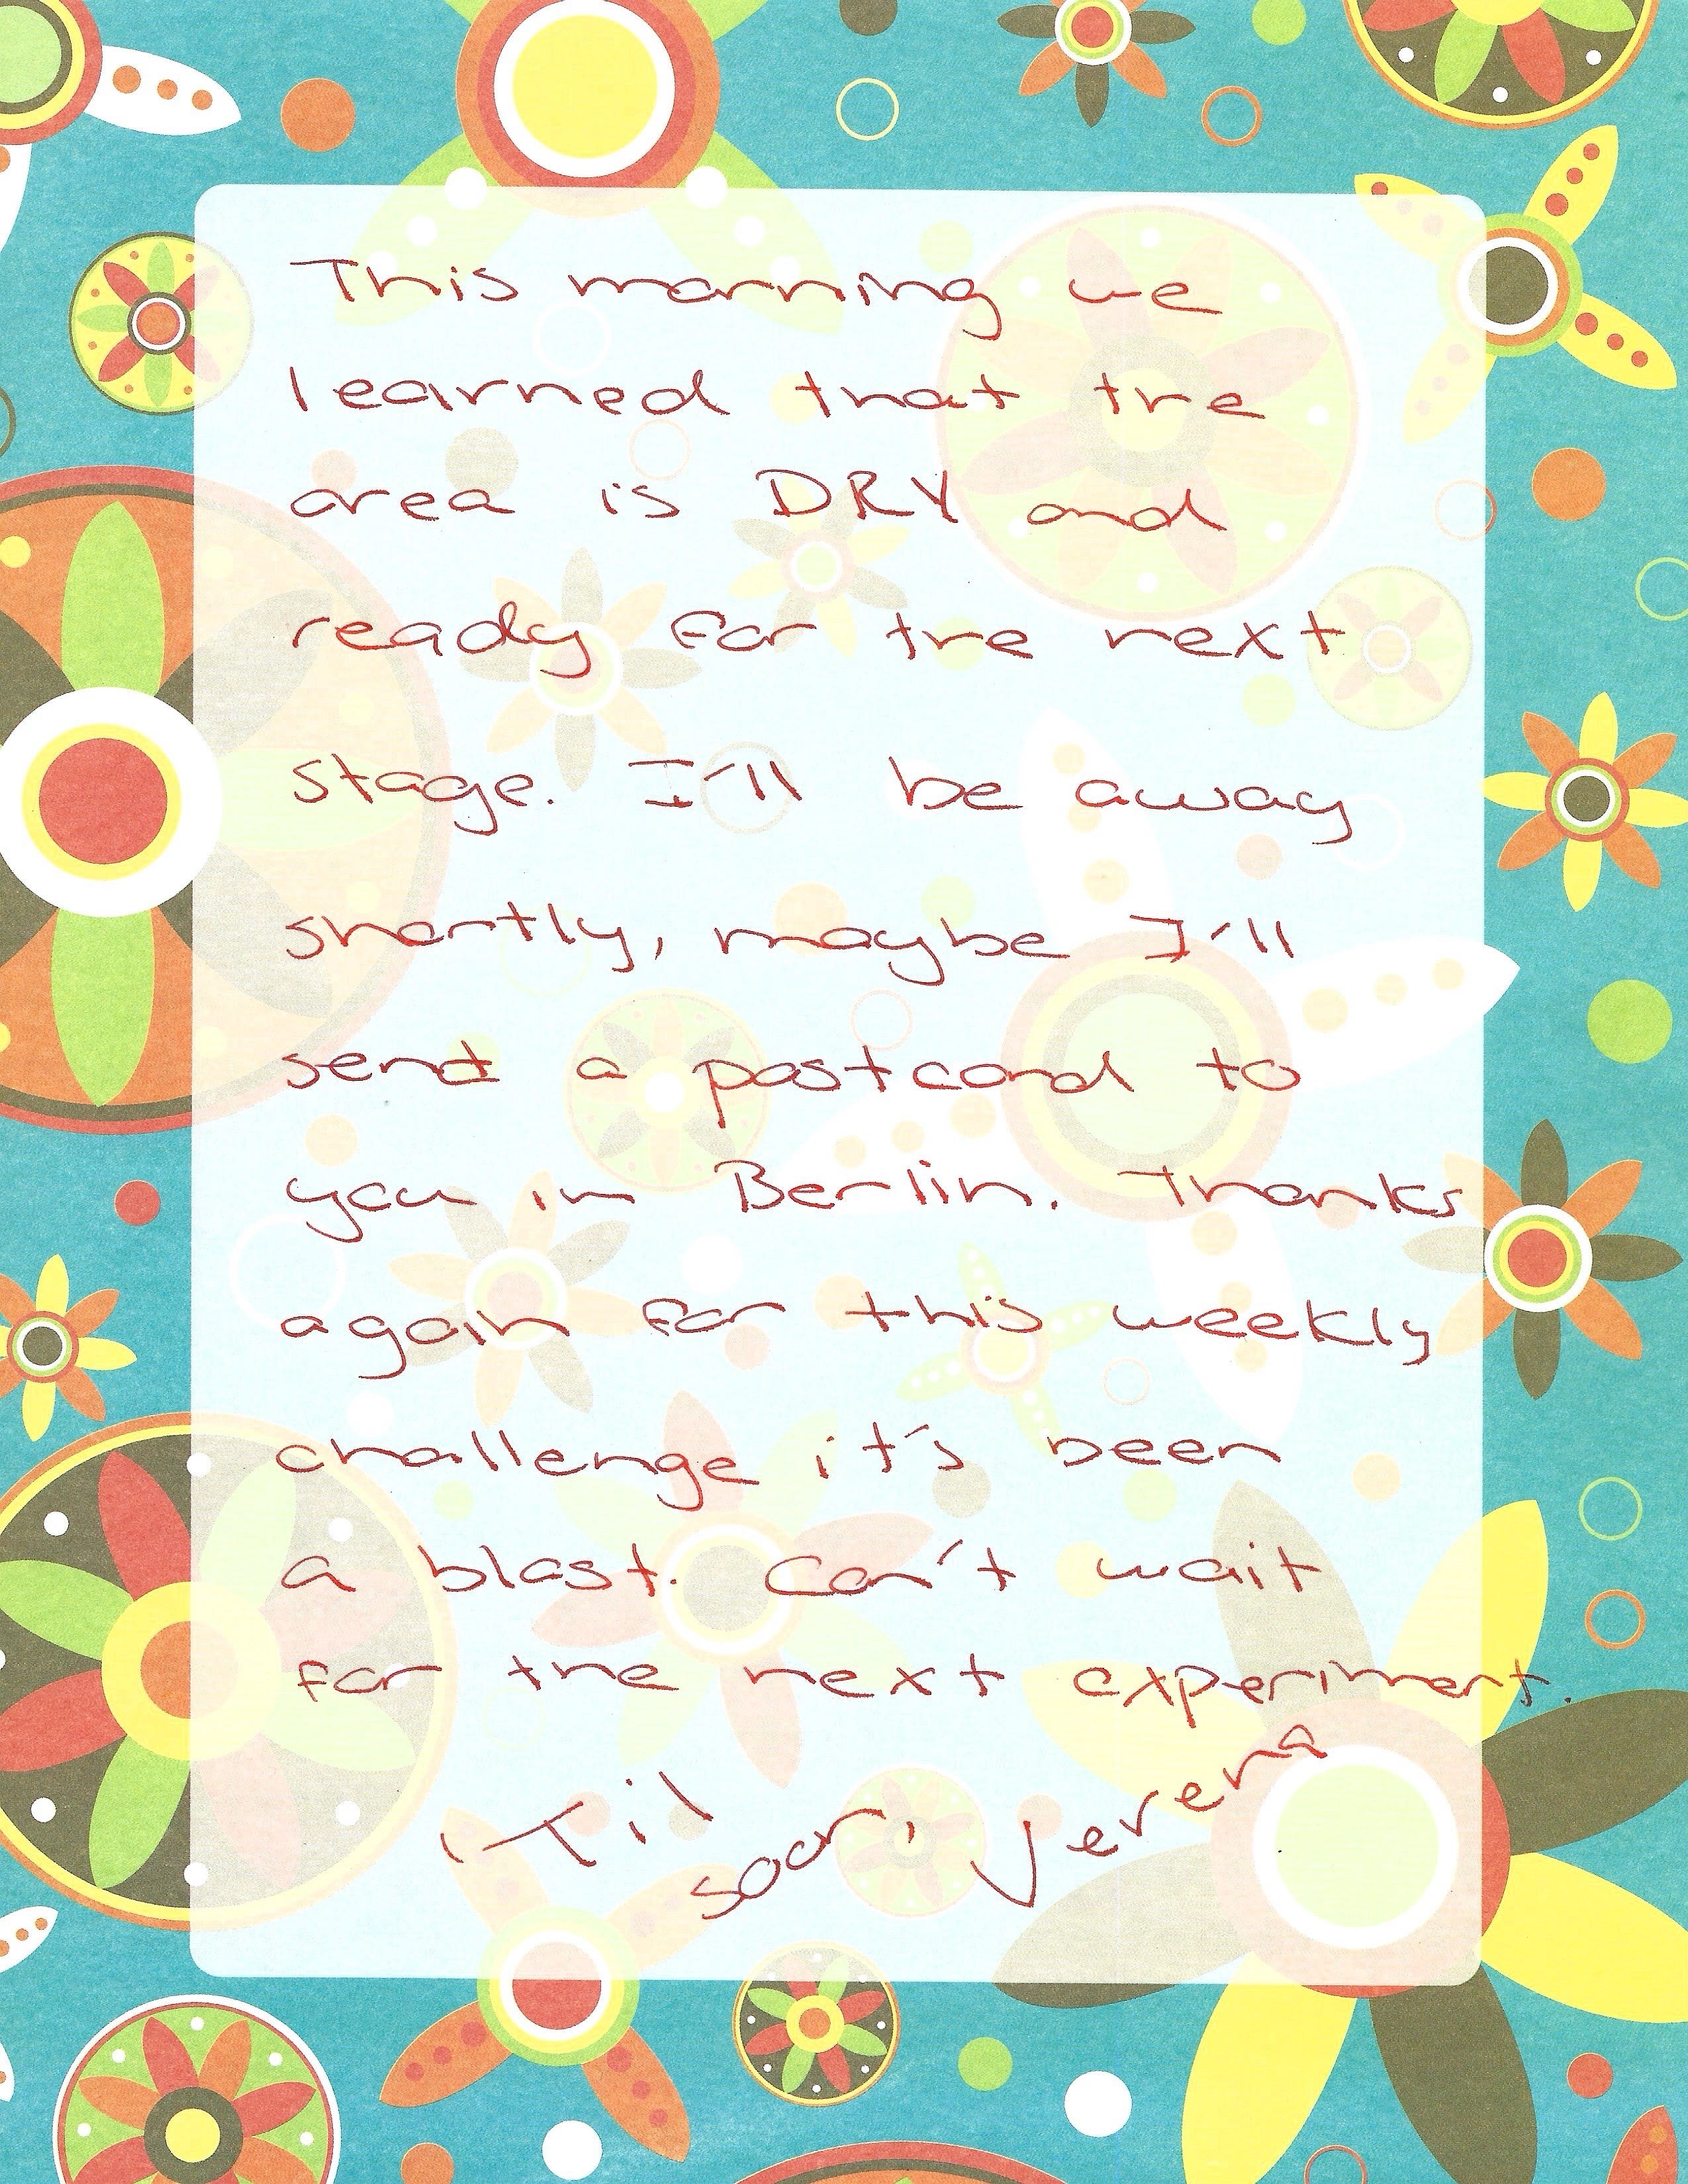 This morning we
learned that the
area is DRY and
ready for the next
stage. I'll be away
shortly, maybe I'll
send a postcard to
you in Berlin. Thanks
again for this weekly
challenge it's been
a blast. Can't wait
for the next experiment.
'Til
soon, Verena